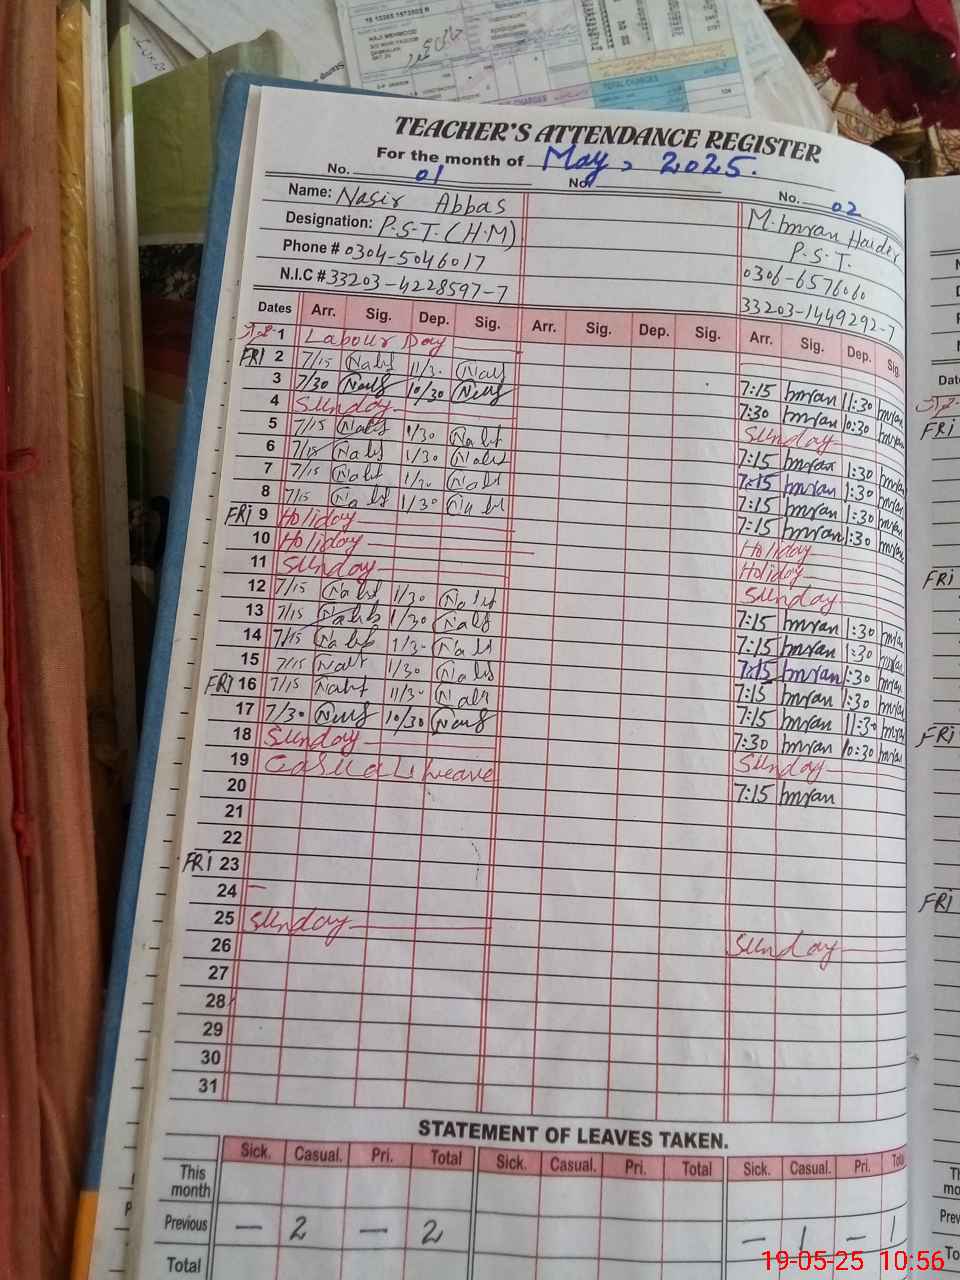 HAJI MEHMOOD
TOTAL CHARGES
TEACHER'S ATTENDANCE REGISTER
For the month of May, 2025.
No. 01 No. No. 02
Name: Nasir Abbas M. Imran Haider
Designation: P.S.T. (H.M) P.S.T.
Phone # 0304-5046017 0306-6576060
N.I.C # 33203-4228597-7 33203-1449292-7
Dates Arr. Sig. Dep. Sig. Arr. Sig. Dep. Sig. Arr. Sig. Dep. Sig.
1 Labour Day
FRI 2 7/15 11/30 7:15 Imran 11:30 Imran
3 7/30 10/30 7:30 Imran 10:30 Imran
4 Sunday Sunday
5 7/15 1/30 7:15 Imran 1:30 Imran
6 7/15 1/30 7:15 Imran 1:30 Imran
7 7/15 1/30 7:15 Imran 1:30 Imran
8 7/15 1/30 7:15 Imran 1:30 Imran
FRI 9 Holiday Holiday
10 Holiday Holiday
11 Sunday Sunday
12 7/15 1/30 7:15 Imran 1:30 Imran
13 7/15 1/30 7:15 Imran 1:30 Imran
14 7/15 1/30 7:15 Imran 1:30 Imran
15 7/15 1/30 7:15 Imran 1:30 Imran
FRI 16 7/15 11/30 7:15 Imran 11:30 Imran
17 7/30 10/30 7:30 Imran 10:30 Imran
18 Sunday Sunday
19 Casual Leave 7:15 Imran
20
21
22
FRI 23
24
25 Sunday Sunday
26
27
28
29
30
31
FRI
FRI
FRI
FRI
STATEMENT OF LEAVES TAKEN.
Sick. Casual. Pri. Total Sick. Casual. Pri. Total Sick. Casual. Pri. Total
This month
Previous — 2 — 2 — 1 — 1
Total
19-05-25 10:56